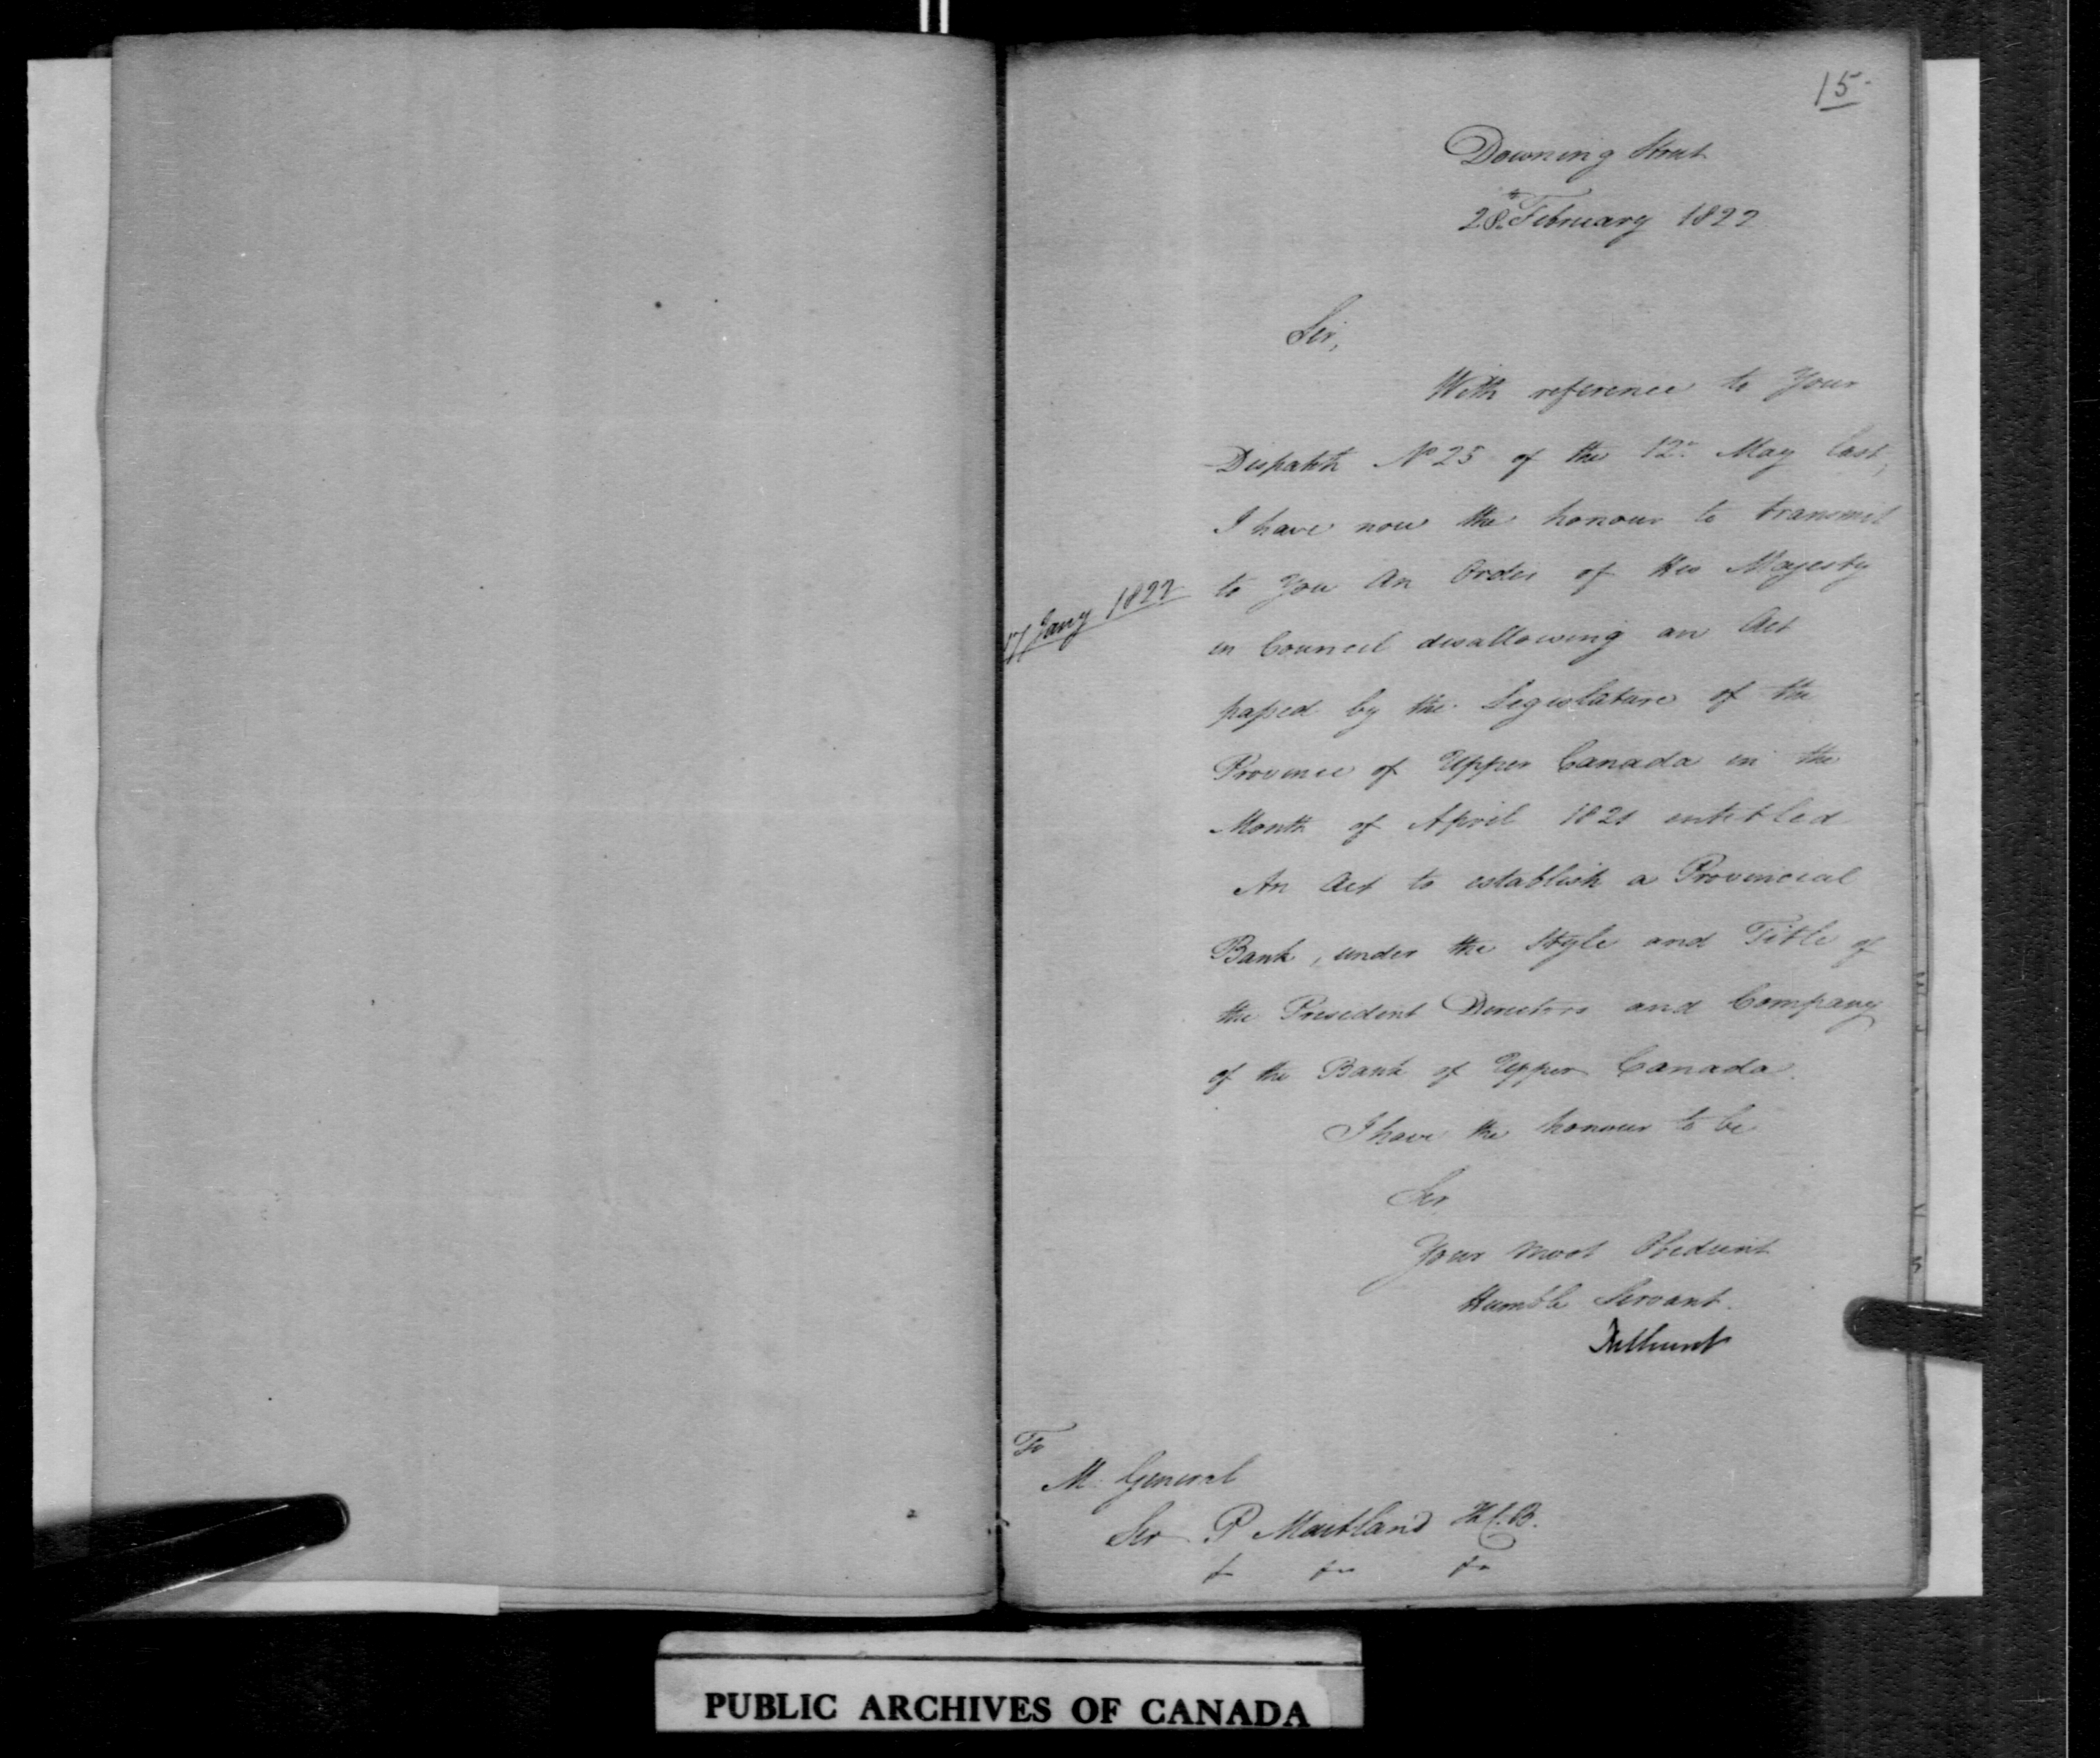 15.
Downing Street
28th February 1822
Sir,
With reference to Your
Dispatch No 25 of the 12th May last,
I have now the honour to transmit
17 Jany 1822
to You an Order of His Majesty
in Council disallowing an Act
passed by the Legislature of the
Province of Upper Canada in the
Month of April 1821 entitled
An Act to establish a Provincial
Bank, under the Style and Title of
the President Directors and Company
of the Bank of Upper Canada.
I have the honour to be
Sir
Your most Obedient
Humble Servant.
Bathurst
To
M. General
Sir P Maitland K.C.B.
PUBLIC ARCHIVES OF CANADA